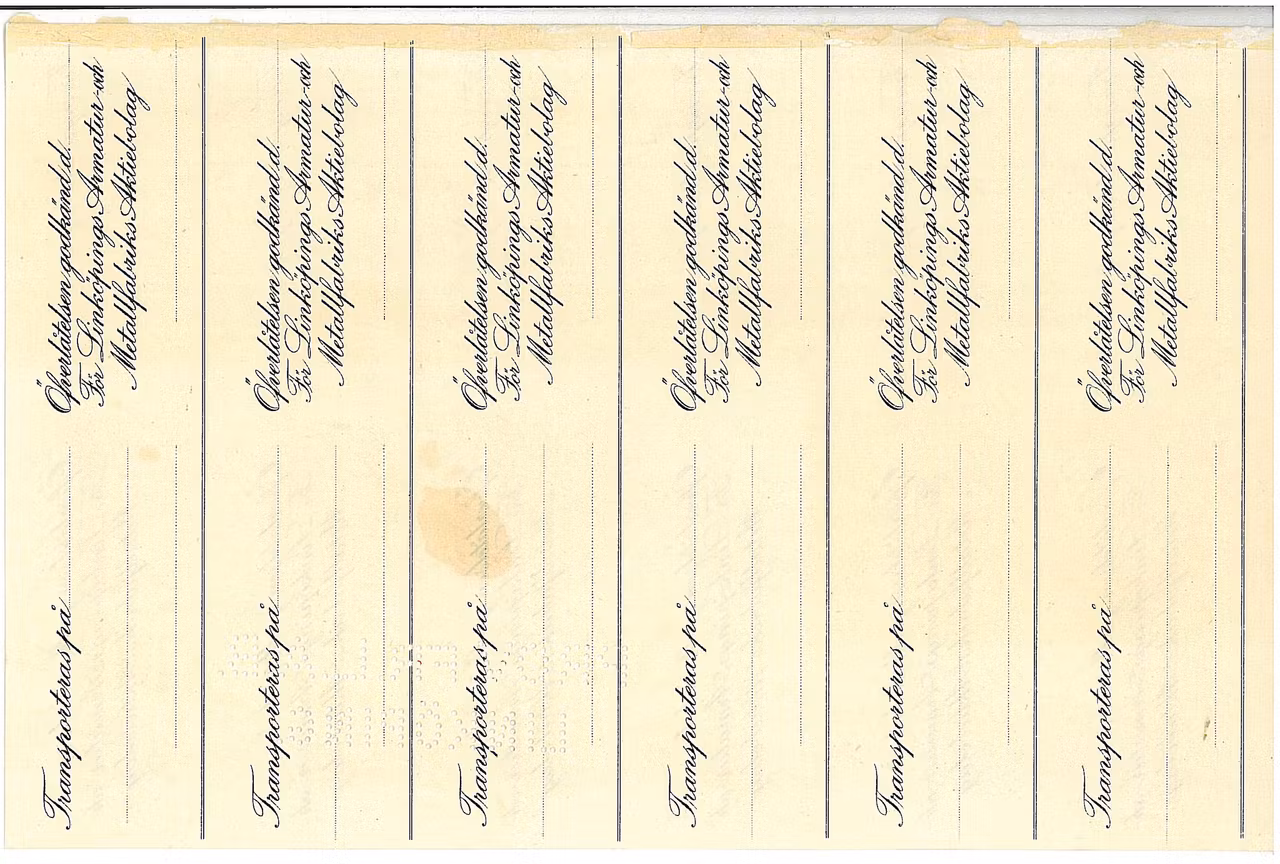 Transporteras på
Överlåtelsen godkänd d.
För Linköpings Armatur-och
Metallfabriks Aktiebolag
Transporteras på
Överlåtelsen godkänd d.
För Linköpings Armatur-och
Metallfabriks Aktiebolag
Transporteras på
Överlåtelsen godkänd d.
För Linköpings Armatur-och
Metallfabriks Aktiebolag
Transporteras på
Överlåtelsen godkänd d.
För Linköpings Armatur-och
Metallfabriks Aktiebolag
Transporteras på
Överlåtelsen godkänd d.
För Linköpings Armatur-och
Metallfabriks Aktiebolag
Transporteras på
Överlåtelsen godkänd d.
För Linköpings Armatur-och
Metallfabriks Aktiebolag